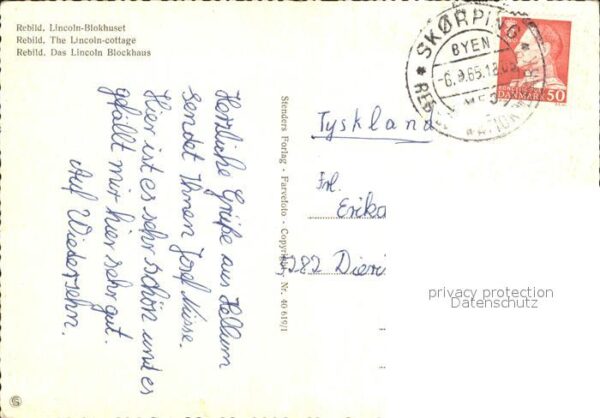 Rebild. Lincoln-Blokhuset
Rebild. The Lincoln-cottage
Rebild. Das Lincoln Blockhaus
Herzliche Grüße aus Hellum
sendet Ihnen Josef Nüsse.
Hier ist es sehr schön und es
gefällt mir hier sehr gut.
Auf Wiedersehn.
Stenders Forlag - Farvefoto - Copyright - Nr. 40 619/1
SKØRPING
BYEN
6.9.65.18
MED
DANMARK 50
Tyskland
Frl.
Erika
privacy protection
Datenschutz